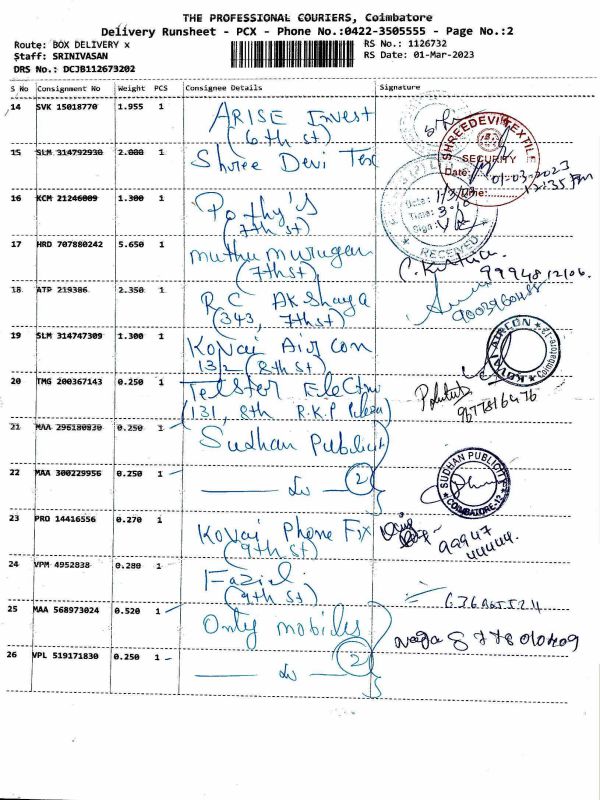 THE PROFESSIONAL COURIERS, Coimbatore
Delivery Runsheet - PCX - Phone No.:0422-3505555 - Page No.:2
Route: BOX DELIVERY x
Staff: SRINIVASAN
DRS No.: DCJB112673202
RS No.: 1126732
RS Date: 01-Mar-2023
S No Consignment No Weight PCS Consignee Details Signature
14 SVK 15018770 1.955 1 ARISE Invest
(6th st)
15 SLM 314792930 2.000 1 Shree Devi Tex
SHREEDEVI TEXTILE
SECURITY
Date: 01-03-2023
Time: 12:35 Pm
16 KCM 21246009 1.300 1 Pothy's
(7th st)
Date: 1/3/
Time: 3
Sign:
RECEIVED
17 HRD 707880242 5.650 1 muthu murugan
(7th st)
99948 12106.
18 ATP 219386 2.350 1 R C AKShaya
(343, 7th st)
19 SLM 314747309 1.300 1 Kovai Air Con
132 (8th St)
KOVAI AIRCON
Coimbatore
20 TMG 200367143 0.250 1 Telstor Electro
(131, 8th R.K.P
9677816476
21 MAA 296180830 0.250 1 Sudhan Publicit
SUDHAN PUBLICITY
COIMBATORE-12
22 MAA 300229956 0.250 1 2
23 PRO 14416556 0.270 1 Kovai Phone Fix
(9th st)
99947
44444.
24 VPM 4952838 0.280 1 Fazil
(9th st)
25 MAA 568973024 0.520 1 Only mobiles
26 VPL 519171830 0.250 1 2